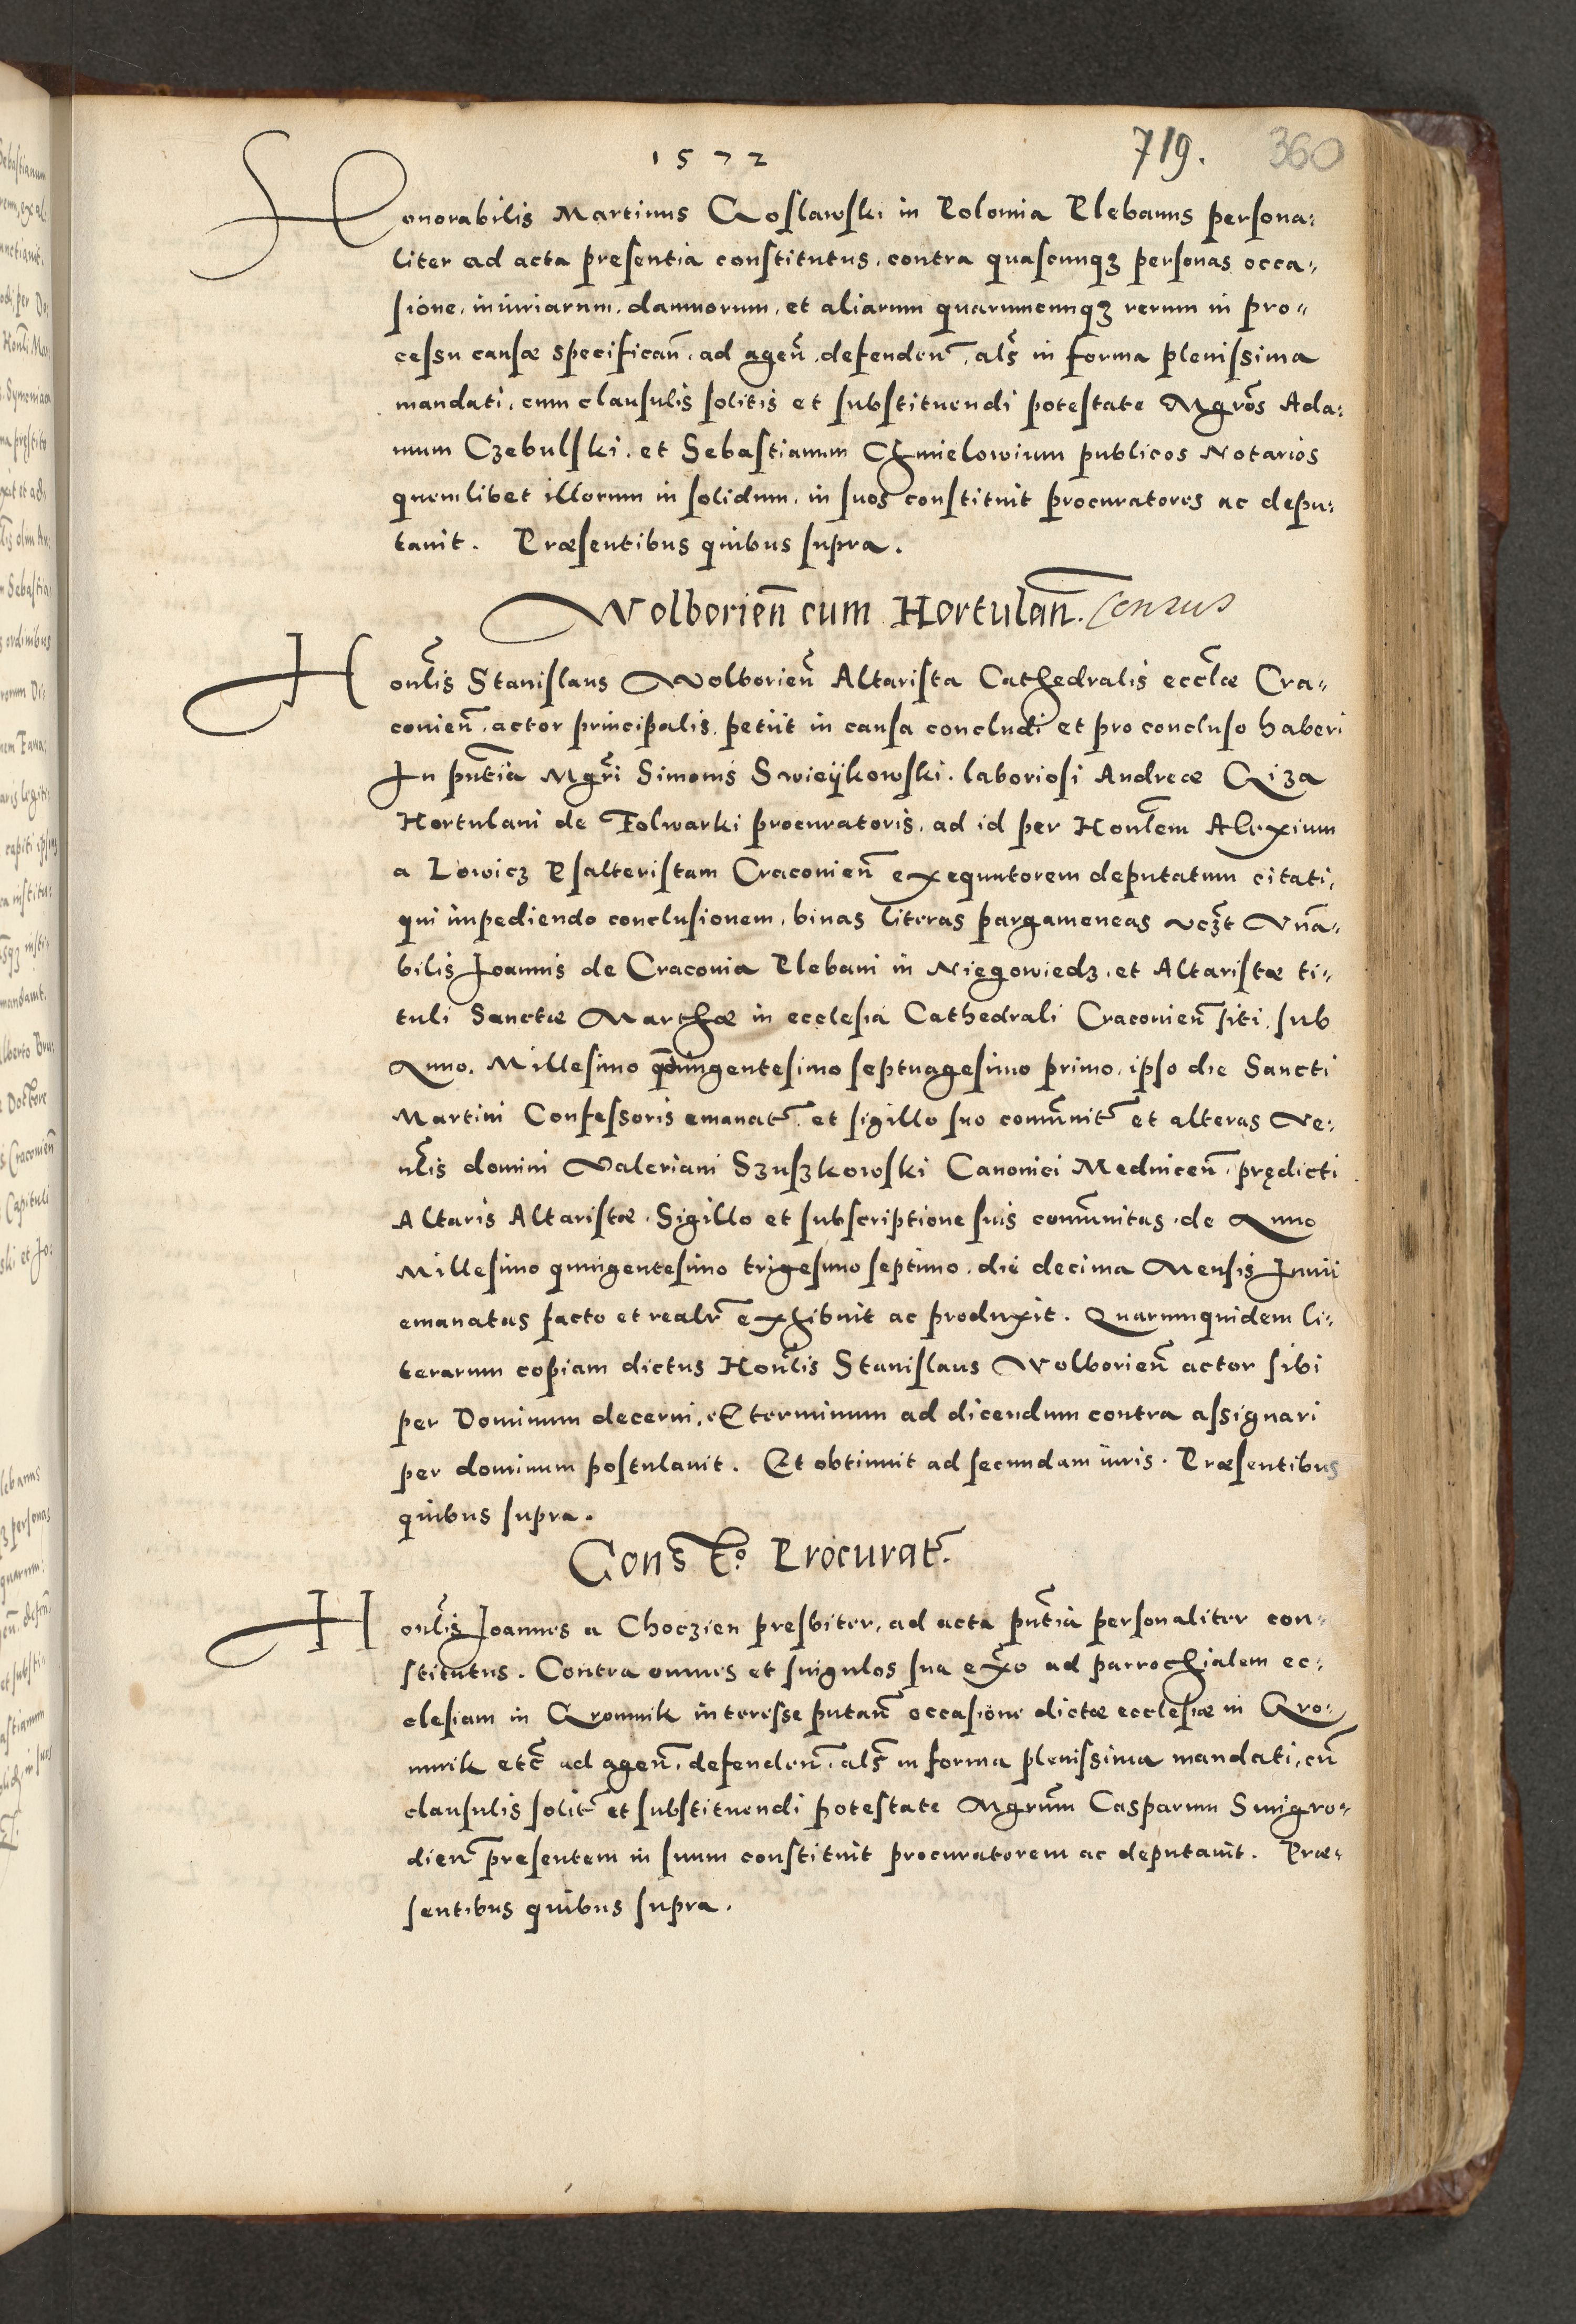 1572 719. 360
Honorabilis Martinus Goslawski in Polomia Plebanus persona:
liter ad acta presentia constitutus, contra quascunqȝ personas occa:
sione, iniuriarum, damnorum, et aliarum quarumcunqȝ rerum in pro:
cessu causæ specifican̄, ad agen̄, defenden̄, als̄ in forma plenissima
mandati, cum clausulis solitis et substituendi potestate Mgr̄os Ada:
mum Czebulski, et Sebastianum Chmielowium publicos Notarios
quemlibet illorum in solidum, in suos constituit procuratores ac depu:
tauit. Præsentibus quibus supra.
Wolborien̄ cum Hortulan̄. Census
Hon̄lis Stanislaus Wolborien̄ Altarista Cathedralis eccl̄æ Cra:
conien̄, actor principalis, petiit in causa concludi et pro concluso haberi
In pn̄tia Mgr̄i Simonis Swieÿkowski, laboriosi Andreæ Giza
Hortulani de Folwarki procuratoris, ad id per Honl̄em Alexium
a Lowicz Psalteristam Craconien̄ exequutorem deputatum citati,
qui impediendo conclusionem, binas literas pargameneas vcȝt Vn̄a:
bilis Joannis de Craconia Plebani in Niegowiedz, et Altaristæ ti:
tuli Sanctæ Marthæ in ecclesia Cathedrali Craconien̄ siti, sub
Anno, Millesimo quingentesimo septuagesimo primo, ipso die Sancti
Martini Confessoris emanat̄, et sigillo suo comūnit̄ et alteras Ve:
nl̄is domini Valeriani Szuszkowski Canonici Mednicen̄, prędicti
Altaris Altaristæ, Sigillo et subscriptione suis comūnitas, de Anno
Millesimo quingentesimo trigesimo septimo, die decima Mensis Junii
emanatas facto et realr̄ exhibuit ac produxit. Quarumquidem li:
terarum copiam dictus Hon̄lis Stanislaus Wolborien̄ actor sibi
per Dominum decerni, et terminum ad dicendum contra assignari
per dominum postulauit. Et obtinuit ad secundam iuris. Præsentibus
quibus supra.
Cons̄ t̄o. Procurat̄.
Hon̄lis Joannes a Choczien presbiter, ad acta pn̄tia personaliter con:
stitutus. Contra omnes et singulos sua ex̄o ad parrochialem ec:
clesiam in Gromnik interesse putan̄ occasione dictæ ecclesiæ in Gro:
mnik etc̄ ad agen̄, defenden̄, als̄ in forma plenissima mandati, cū
clausulis solit̄ et substituendi potestate Mgrūm Casparum Smigro:
dien̄ presentem in suum constituit procuratorem ac deputauit. Præ:
sentibus quibus supra.